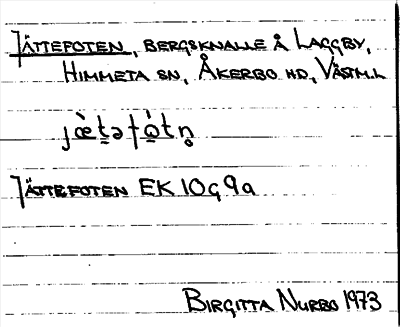 JÄTTEFOTEN, BERGSKNALLE Å LAGGBY,
HIMMETA SN, ÅKERBO HD, VÄSTM.L
JÄTTEFOTEN EK 10G 9a
BIRGITTA NURBO 1973